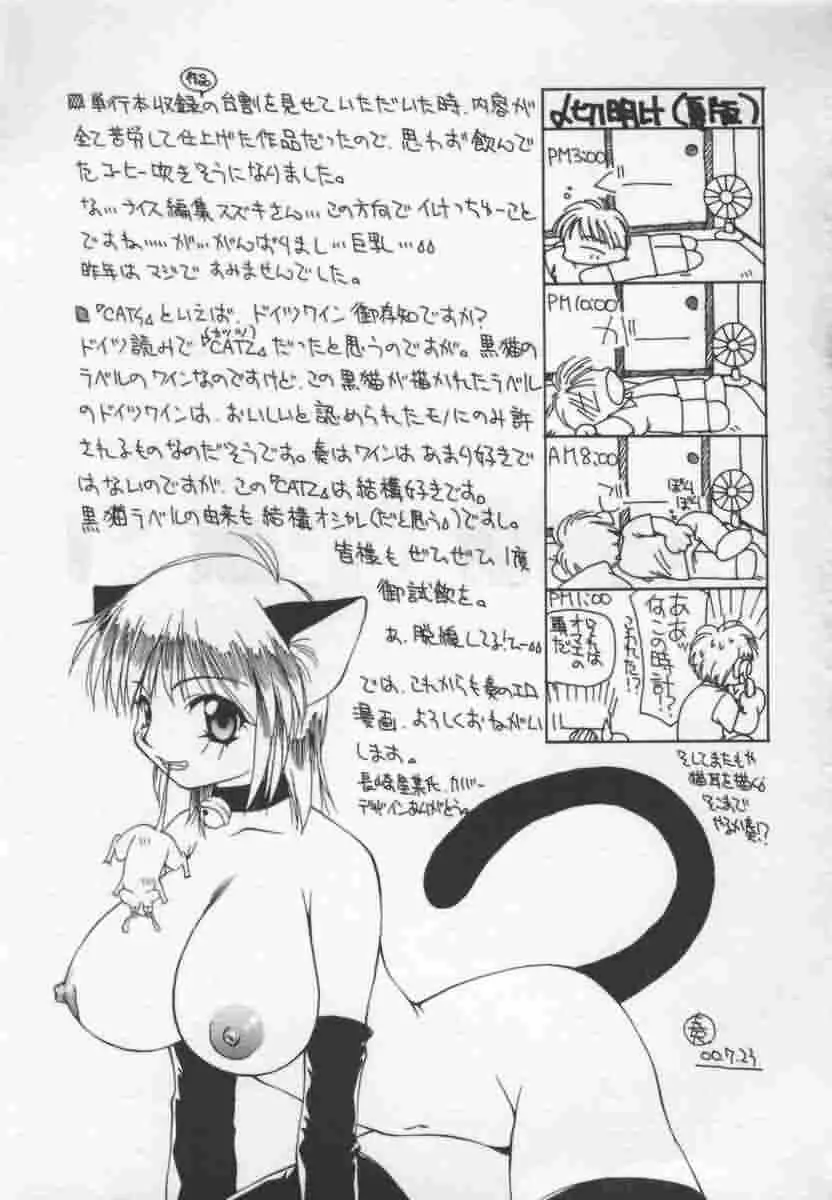 作品
単行本収録の台割を見せていただいた時、内容が
全て苦労して仕上げた作品だったので、思わず飲んで
たコーヒー吹きそうになりました。
な…ライス編集スズキさん…この方向でイけっちゅーこと
ですね……が…がんばりまし…巨乳…
昨年はマジですみませんでした。
『CATS』といえば、ドイツワイン御存知ですか?
ドイツ読みで『CATZ』だったと思うのですが。黒猫の
ラベルのワインなのですけど、この黒猫が描かれたラベル
のドイツワインは、おいしいと認められたモノにのみ許
されるものなのだそうです。奏はワインはあまり好きで
はないのですが、この『CATZ』は結構好きです。
黒猫ラベルの由来も結構オシャレ(だと思う)ですし。
皆様もぜひぜひ1度
御試飲を。
あ、脱線してる!
では、これからも奏のエロ
漫画、よろしくおねがい
します。
カバー
デザインありがとう。
〆切明け(夏版)
PM3:00
PM10:00
ガー
AM8:00
ぼり
ぼり
PM1:00
ああッ
なこの時計!?
こわれた!?
こわれたのは
オマエの
頭だ
そしてまたもや
猫耳を描く
そこまで
やるか奏!?
奏
00.7.23